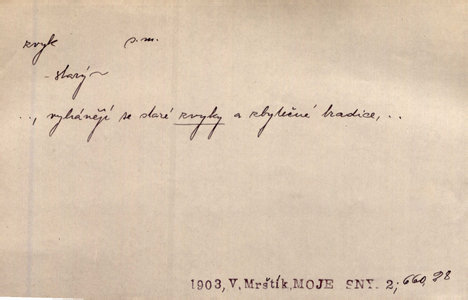 zvyk s.m.
- starý ~
.., vyhánějí se staré zvyky a zbytečné tradice, ..
1903, V. Mrštík, MOJE SNY. 2; 660, 28